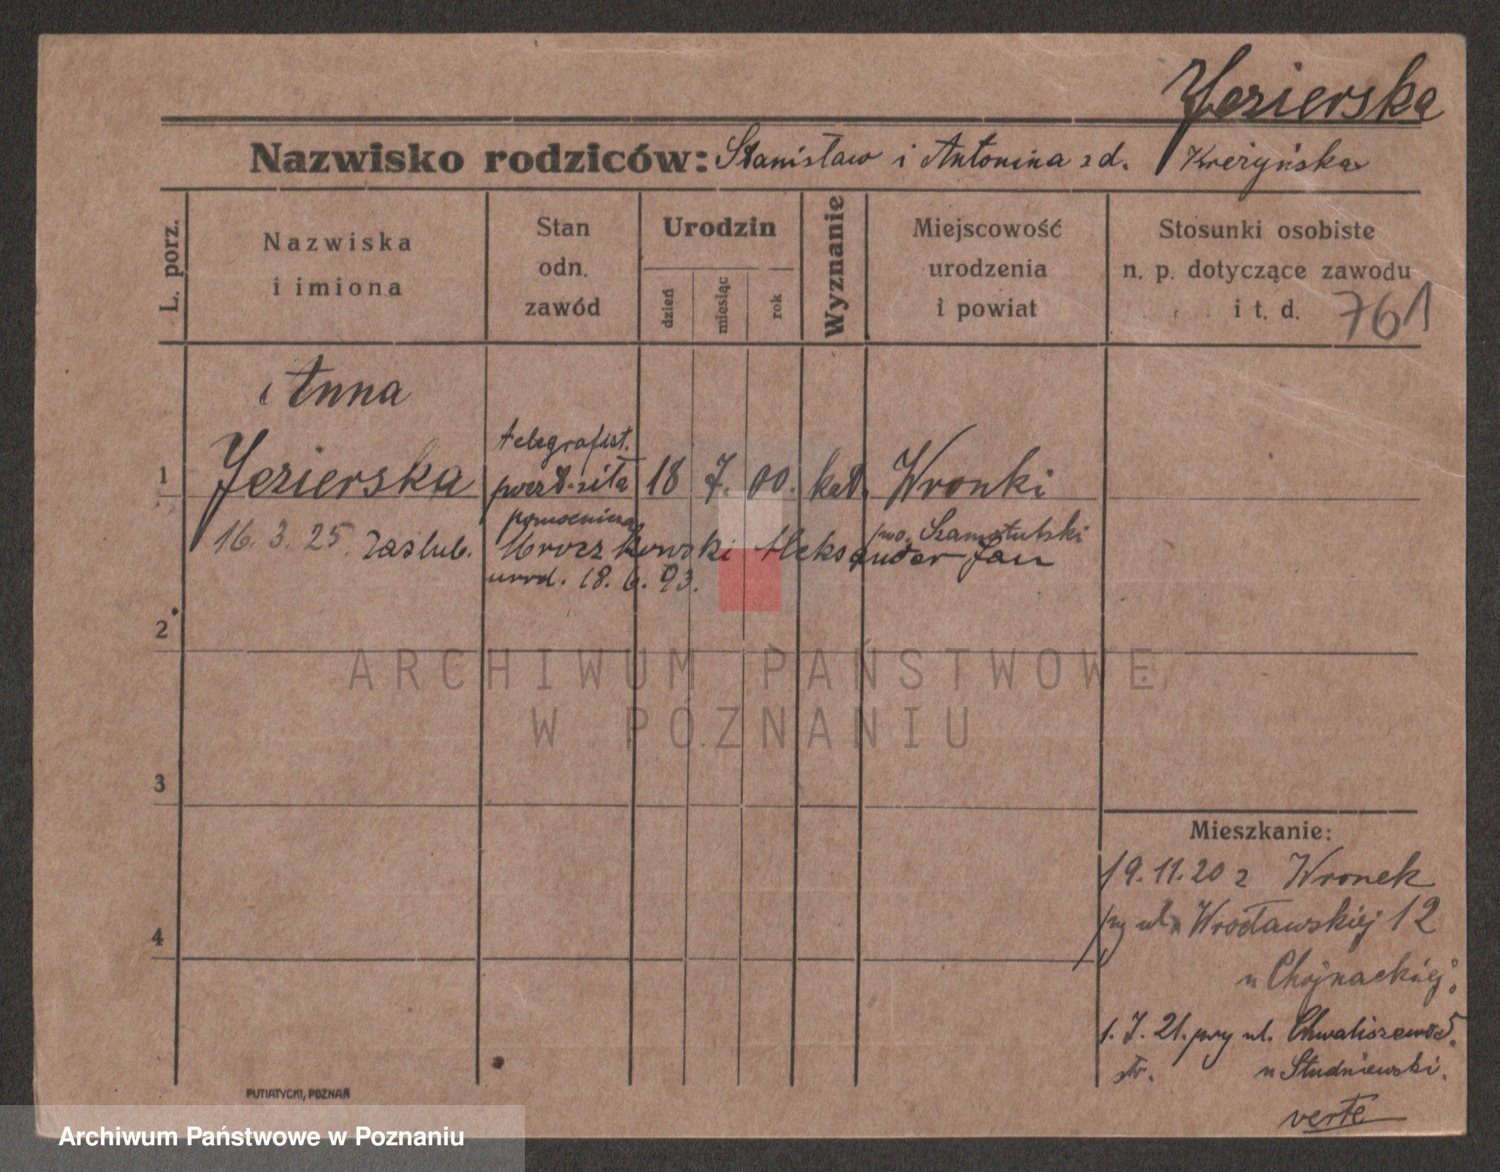 Jezierska
Nazwisko rodziców: Stanisław i Antonina z d. Kreżyńska
L. porz.
Nazwiska
i imiona
Stan
odn.
zawód
Urodzin
dzień
miesiąc
rok
Wyznanie
Miejscowość
urodzenia
i powiat
Stosunki osobiste
n. p. dotyczące zawodu
i t. d.
761
Anna
telegrafist.
1 Jezierska poczt. siła 18 7. 00. kat. Wronki
pomocnicza po. Szamotulski
16. 3. 25. zaślub. Mroczkowski Aleksander Jan
urod. 18. 6. 93.
2
3
4
ARCHIWUM PAŃSTWOWE
W POZNANIU
Mieszkanie:
19.11.20 z Wronek
przy ul. Wrocławskiej 12
u Chojnackiej.
1. 7. 21. przy ul. Chwaliszewo
u Studniewski.
verte
PUTIATYCKI, POZNAŃ
Archiwum Państwowe w Poznaniu